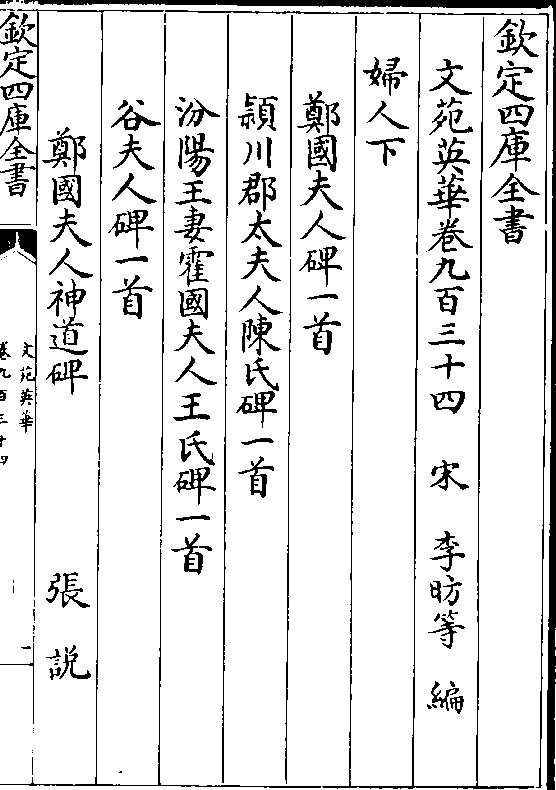 欽定四庫全書
文苑英華卷九百三十四　宋　李昉等　編
婦人下
鄭國夫人碑一首
潁川郡太夫人陳氏碑一首
汾陽王妻霍國夫人王氏碑一首
谷夫人碑一首
鄭國夫人神道碑　張説
欽定四庫全書
文苑英華
卷九百三十四
一